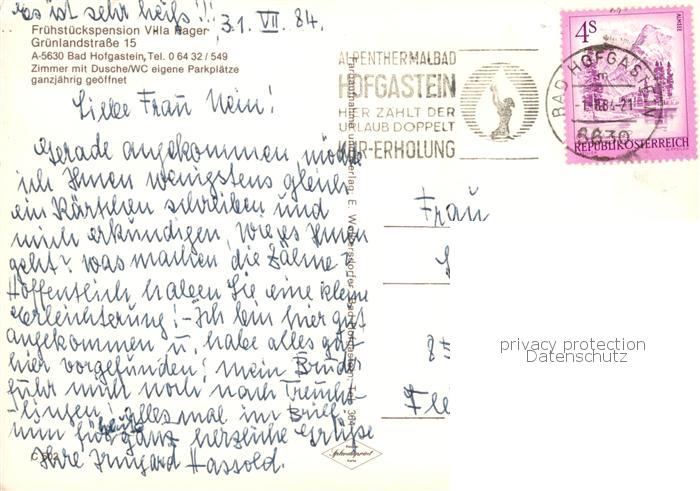 es ist sehr heiß!!!
31. VII. 84.
Frühstückspension Villa Hager
Grünlandstraße 15
A-5630 Bad Hofgastein, Tel. 0 64 32 / 549
Zimmer mit Dusche/WC eigene Parkplätze
ganzjährig geöffnet
Liebe Frau Hein!
Gerade angekommen, möchte
ich Ihnen wenigstens gleich
ein Kärtchen schreiben und
mich erkundigen, wie es Ihnen
geht? was machen die Zähne?
Hoffentlich haben Sie eine kleine
Erleichterung! - Ich bin hier gut
angekommen u. habe alles gut
hier vorgefunden! mein Bruder
fuhr mich noch nach
alles mal im Brief,
nun für heute ganz herzliche Grüße
Ihre Irmgard Hassold.
ALPENTHERMALBAD
HOFGASTEIN
HIER ZÄHLT DER
URLAUB DOPPELT
KUR-ERHOLUNG
BAD HOFGASTEIN
5630
4S
ALMSEE
REPUBLIK ÖSTERREICH
Frau
privacy protection
Datenschutz